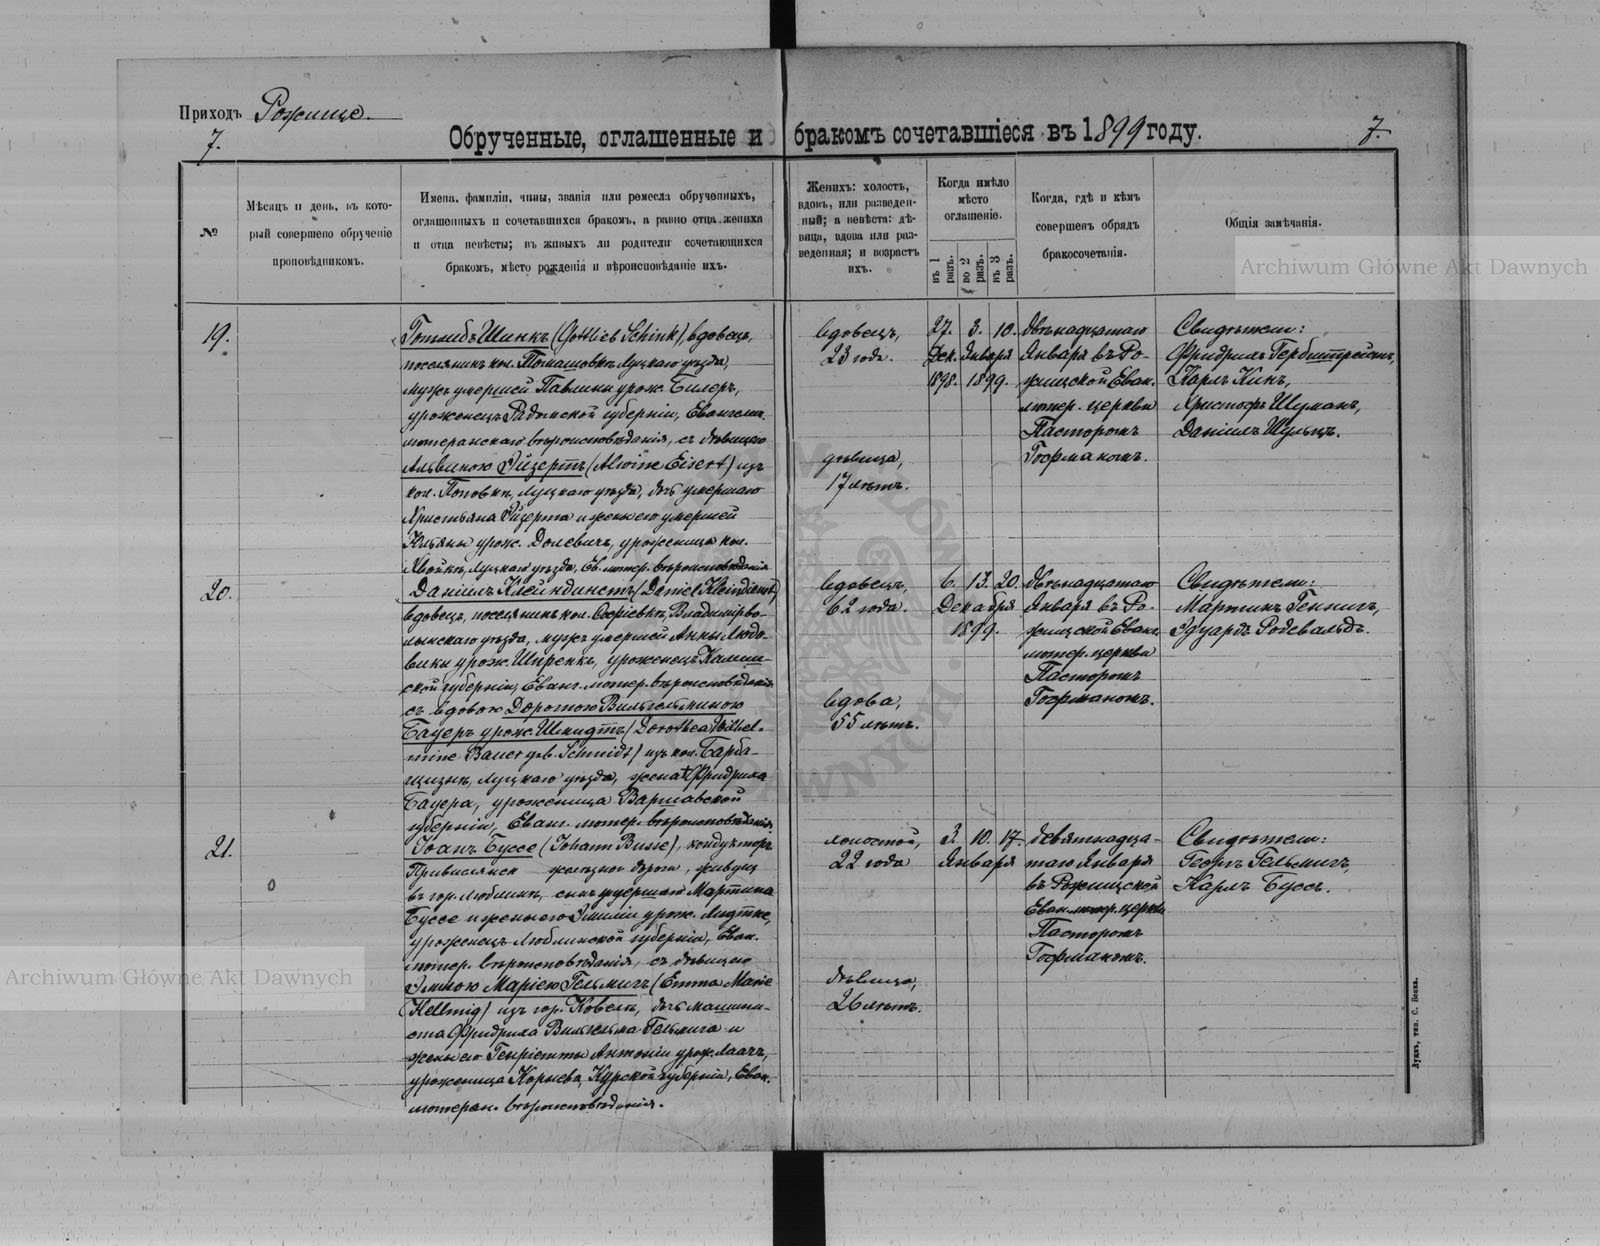 Приходъ Рожище.
7.
7.
Обрученные, оглашенные и бракомъ сочетавшіеся въ 1899 году.
№
Мѣсяцъ и день, въ который совершено обрученіе проповѣдникомъ.
Имена, фамиліи, чины, званія или ремесла обрученныхъ,
оглашенныхъ и сочетавшихся бракомъ, а равно отца жениха
и отца невѣсты; въ живыхъ ли родители сочетающихся
бракомъ, мѣсто рожденія и вѣроисповѣданіе ихъ.
Женихъ: холостъ,
вдовъ, или разведенный;
а невѣста: дѣвица,
вдова или разведенная;
и возрастъ
ихъ.
Когда имѣло
мѣсто
оглашеніе.
въ 1 разъ.
во 2 разъ.
въ 3 разъ.
Когда, гдѣ и кѣмъ
совершенъ обрядъ
бракосочетанія.
Общія замѣчанія.
Archiwum Główne Akt Dawnych
19.
Готлибъ Шинкъ (Gottlieb Schink), вдовецъ,
поселянинъ кол. Томашовка Луцкаго уѣзда,
мужъ умершей Павлины урож. Билеръ,
уроженецъ Радомской губерніи, Евангел.
лютеранскаго вѣроисповѣданія, съ дѣвицею
Альвиною Эйзертъ (Alwine Eisert) изъ
кол. Поповка, Луцкаго уѣзда, дочь умершаго
Христьяна Эйзерта и жены его умершей
урож. уроженица кол.
Луцкаго уѣзда, Ев. лютер. вѣроисповѣданія
вдовецъ,
23 года.
дѣвица,
17 лѣтъ.
27. 3. 10.
Дек. Января
1898. 1899.
двѣнадцатаго
Января въ Рожищской
Еван.
лютер. церкви
Пасторомъ
Гофманомъ.
Свидѣтели:
Фридрихъ
Карлъ Кинъ,
Христофъ Шуманъ,
Даніилъ Шульцъ.
20.
Даніилъ Клейндинстъ (Daniel Kleindienst)
вдовецъ, поселянинъ кол. Софіевка, Владимірволынскаго
уѣзда, мужъ умершей Анны Людовики
урож. уроженецъ Калишской
губерніи, Еванг. лютер. вѣроисповѣданія,
съ вдовою Доротою Вильгельминою
Бауеръ урож. Шмидтъ (Dorothea Wilhelmine
Bauer geb. Schmidt) изъ кол.
Луцкаго уѣзда, жена † Фридриха
Бауера, уроженица Варшавской
губерніи, Еванг. лютер. вѣроисповѣданія.
вдовецъ,
62 года.
вдова,
55 лѣтъ.
6. 13. 20.
Декабря
1899.
двѣнадцатаго
Января въ Рожищской
Еван.
лютер. церкви
Пасторомъ
Гофманомъ.
Свидѣтели:
Мартинъ Геннигъ,
Эдуардъ Родевальдъ.
21.
Іоанъ Буссе (Johann Busse), кондукторъ
Привислянск желѣзной дороги, живущ
въ гор. Люблинѣ, сынъ умершаго Мартина
Буссе и жены его Эмиліи урож. Лидтке,
уроженецъ Люблинской губерніи, Еван.
лютер. вѣроисповѣданія, съ дѣвицею
Эммою Маріею Гельмигъ (Emma Marie
Hellmig) изъ гор. Ковеля, дочь машиниста
Фридриха Вильгельма Гельмига и
жены его Генріетты Антоніи урож.
уроженица Курской губерніи, Еван.
лютеран. вѣроисповѣданія.
холостой,
22 года
дѣвица,
26 лѣтъ.
3. 10. 17.
Января
девятнадцатаго
Января
въ Рожищской
Еван. лютер. церкви
Пасторомъ
Гофманомъ.
Свидѣтели:
Георгъ Гельмигъ,
Карлъ Буссъ.
Archiwum Główne Akt Dawnych
Луцкъ, тип. С. Бонка.